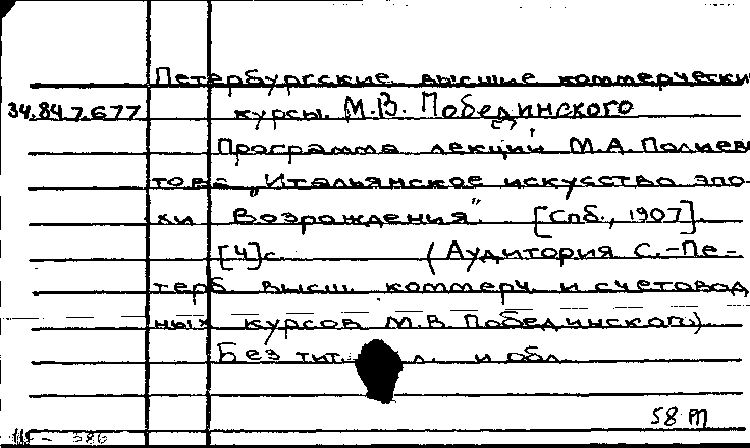 Петербургские высшие коммерчески
34.84.7.677 курсы М.В. Побединского
Программа лекций М.А. Полиев
това „Итальянское искусство эпо-
хи Возрождения". [Спб., 1907].
[4]с. (Аудитория С.-Пе-
терб. высш. коммерч. и счетовод
ных курсов М.В. Побединского)
Без тит. л. и обл.
58 т